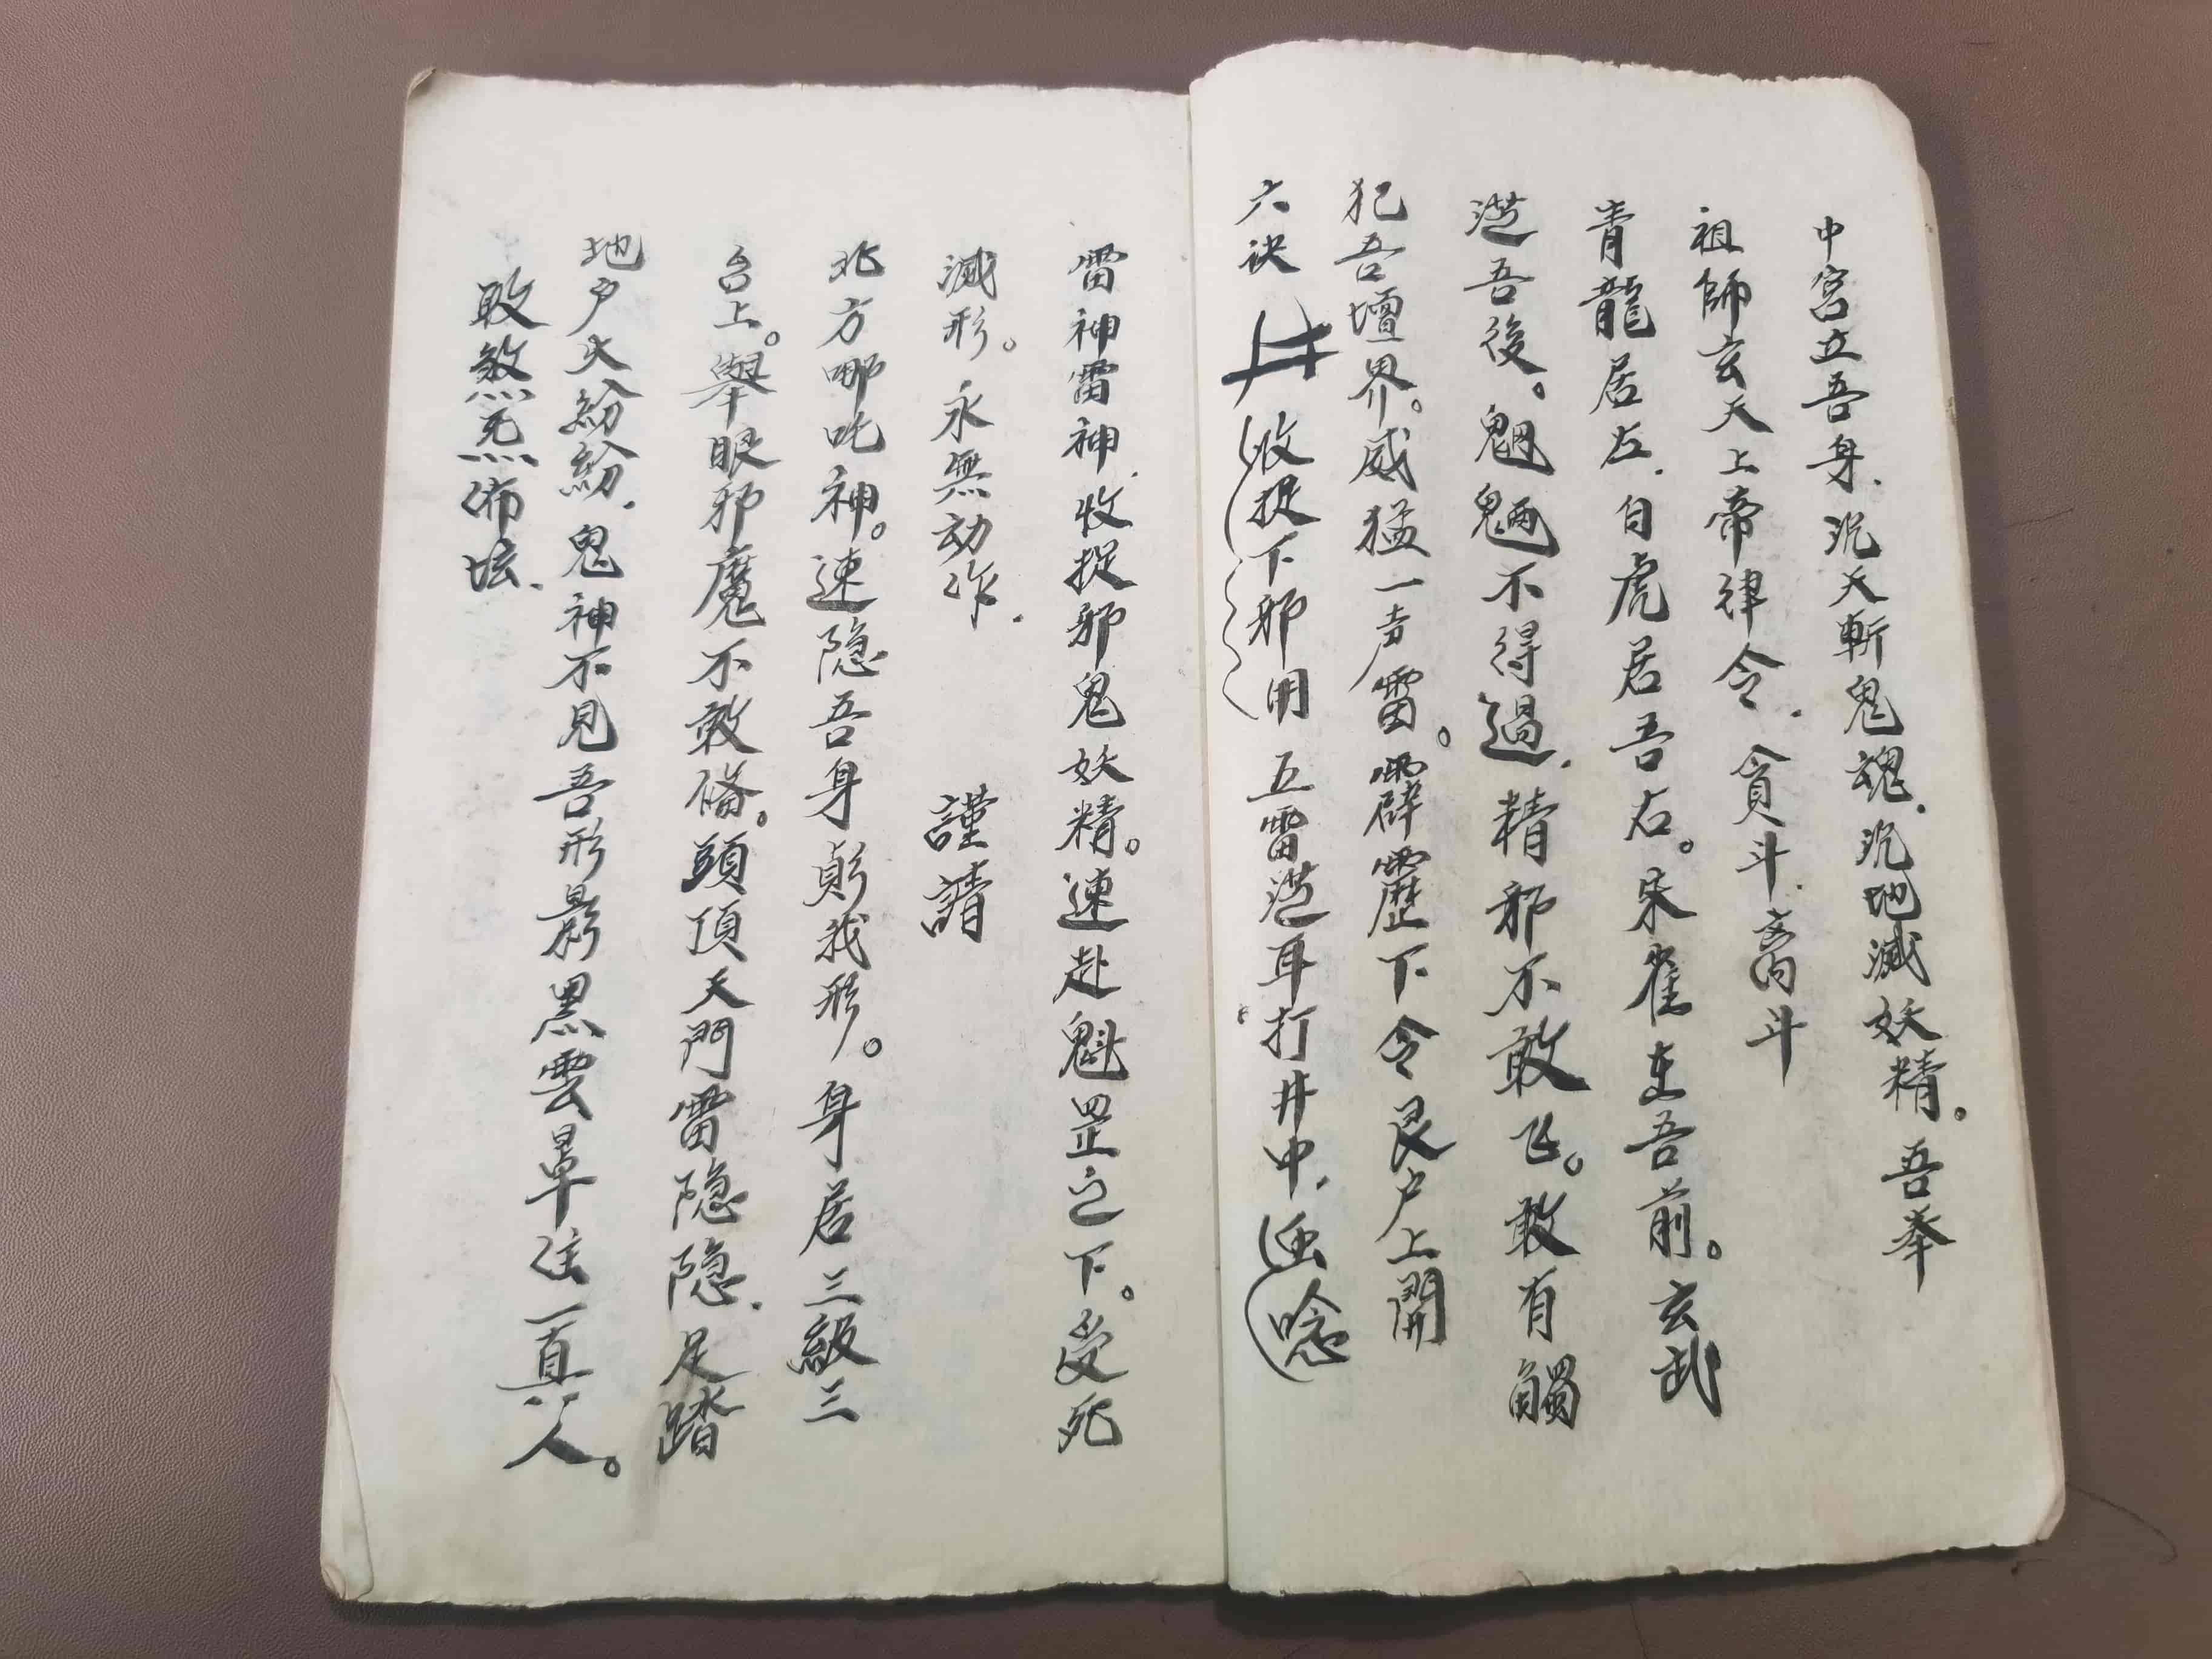 中宮立吾身.況天斬鬼魂.況地滅妖精。吾奉
祖師玄天上帝律令.貪斗.斗
青龍居左.白虎居吾右。朱雀在吾前。玄武
吾後。魍魎不得過.精邪不敢飞。敢有觸
犯吾壇界。威猛一声雷。霹靂下令艮户上開
六诀 井 收捉下邪用五雷耳打井中.唸
雷神雷神.收捉邪鬼妖精。速赴魁罡之下。受死
滅形。永無动作. 謹請
北方哪吒神。速隐吾身我形。身居三級三
台上。舉眼邪魔不敢。頭頂天門雷隐隐.足踏
地户火紛紛.鬼神不見吾形影黑雲罩住一真人。
敗煞布坛.